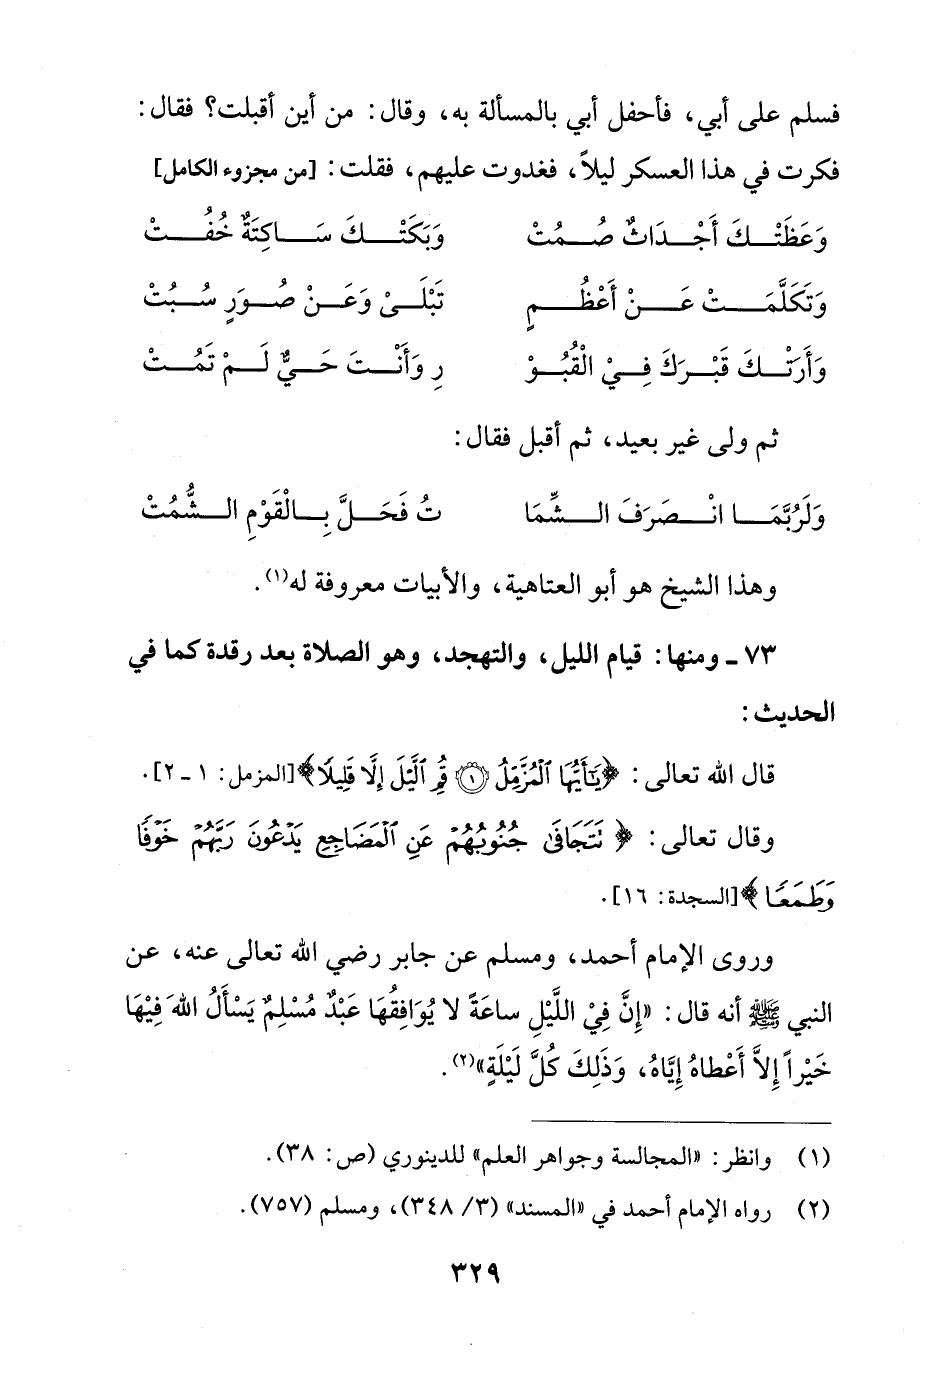 فسلم على أبي، فأحفل أبي بالمسألة به، وقال: من أين أقبلت؟ فقال:
فكرت في هذا العسكر ليلاً، فغدوت عليهم، فقلت: [من مجزوء الكامل]
وَعَظَتْكَ أَجْدَاثٌ صُمُتْ وَبَكَتْكَ سَاكِتَةٌ خُفُتْ
وَتَكَلَّمَتْ عَنْ أَعْظُمٍ تَبْلَىْ وَعَنْ صُوَرٍ سُبُتْ
وَأَرَتْكَ قَبْرَكَ فِيْ الْقُبُوْ رِ وَأَنْتَ حَيٌّ لَمْ تَمُتْ
ثم ولى غير بعيد، ثم أقبل فقال:
وَلَرُبَّمَا انْصَرَفَ الشِّمَا تُ فَحَلَّ بِالْقَوْمِ الشُّمُتْ
وهذا الشيخ هو أبو العتاهية، والأبيات معروفة له(١).
٧٣ ـ ومنها: قيام الليل، والتهجد، وهو الصلاة بعد رقدة كما في
الحديث:
قال الله تعالى: ﴿يَٰٓأَيُّهَا ٱلْمُزَّمِّلُ ۝١ قُمِ ٱلَّيْلَ إِلَّا قَلِيلًا﴾ [المزمل: ١ ـ ٢].
وقال تعالى: ﴿ تَتَجَافَىٰ جُنُوبُهُمْ عَنِ ٱلْمَضَاجِعِ يَدْعُونَ رَبَّهُمْ خَوْفًا
وَطَمَعًا ﴾ [السجدة: ١٦].
وروى الإمام أحمد، ومسلم عن جابر رضي الله تعالى عنه، عن
النبي ﷺ أنه قال: «إِنَّ فِيْ اللَّيْلِ ساعَةً لا يُوَافِقُهَا عَبْدٌ مُسْلِمٌ يَسْأَلُ اللهَ فِيْهَا
خَيْراً إِلاَّ أَعْطاهُ إِيَّاهُ، وَذَلِكَ كُلَّ لَيْلَةٍ»(٢).
(١) وانظر: «المجالسة وجواهر العلم» للدينوري (ص: ٣٨).
(٢) رواه الإمام أحمد في «المسند» (٣/ ٣٤٨)، ومسلم (٧٥٧).
٣٢٩